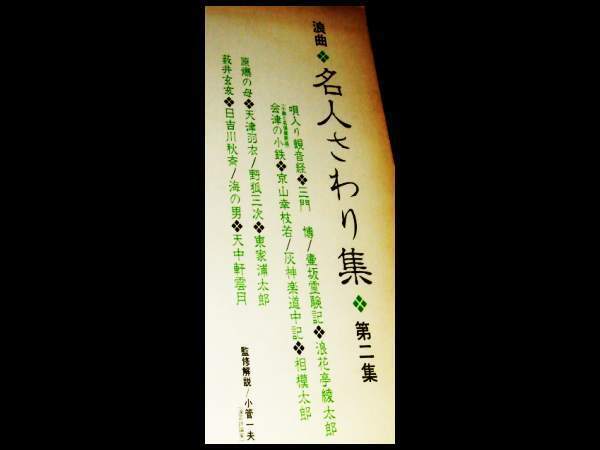 浪曲❖名人さわり集❖第二集
唄入り観音経❖三門 博/壷坂霊験記❖浪花亭綾太郎
会津の小鉄❖京山幸枝若/灰神楽道中記❖相模太郎
原爆の母❖天津羽衣/野狐三次❖東家浦太郎
薮井玄亥❖日吉川秋斎/海の男❖天中軒雲月
監修解説/小菅一夫